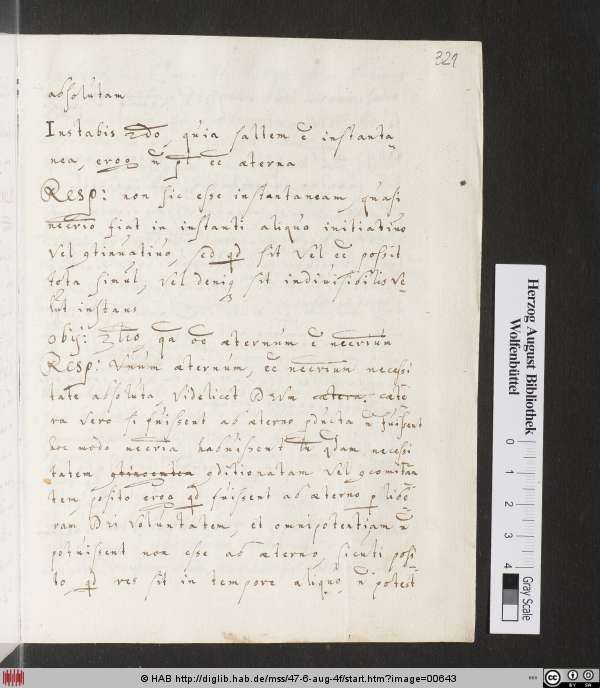 321
absolutam
Instabis 2do, quia saltem ē instanta-
nea, ergo n̄ pt ēē æterna
Resp: non sic esse instantaneam, quasi
necrio fiat in instanti aliquo initiativo
vel 9tinuativo, sed qd sit vel ēē possit
tota simul, vel deniq sit indivisibilis ve-
lut instans
obij: 3tio, qa oē æternum ē necrium
Resp: Unum æternum, ēē necrium necessi
tate absoluta, videlicet Deum cætera cæte
ra vero si fuissent ab æterno pducta n̄ fuissent
hoc modo necria habuissent tn qdam necessi
tatem 9ditionatam vel 9comitan
tem, posito ergo qd fuissent ab æterno p libe-
ram Dei voluntatem, et omnipotentiam n̄
potuissent non esse ab æterno, sicuti posi-
to qd res sit in tempore aliquo n̄ potest
Herzog August Bibliothek
Wolfenbüttel
0 1 2 3 4
Gray Scale
© HAB http://diglib.hab.de/mss/47-6-aug-4f/start.htm?image=00643
cc BY SA